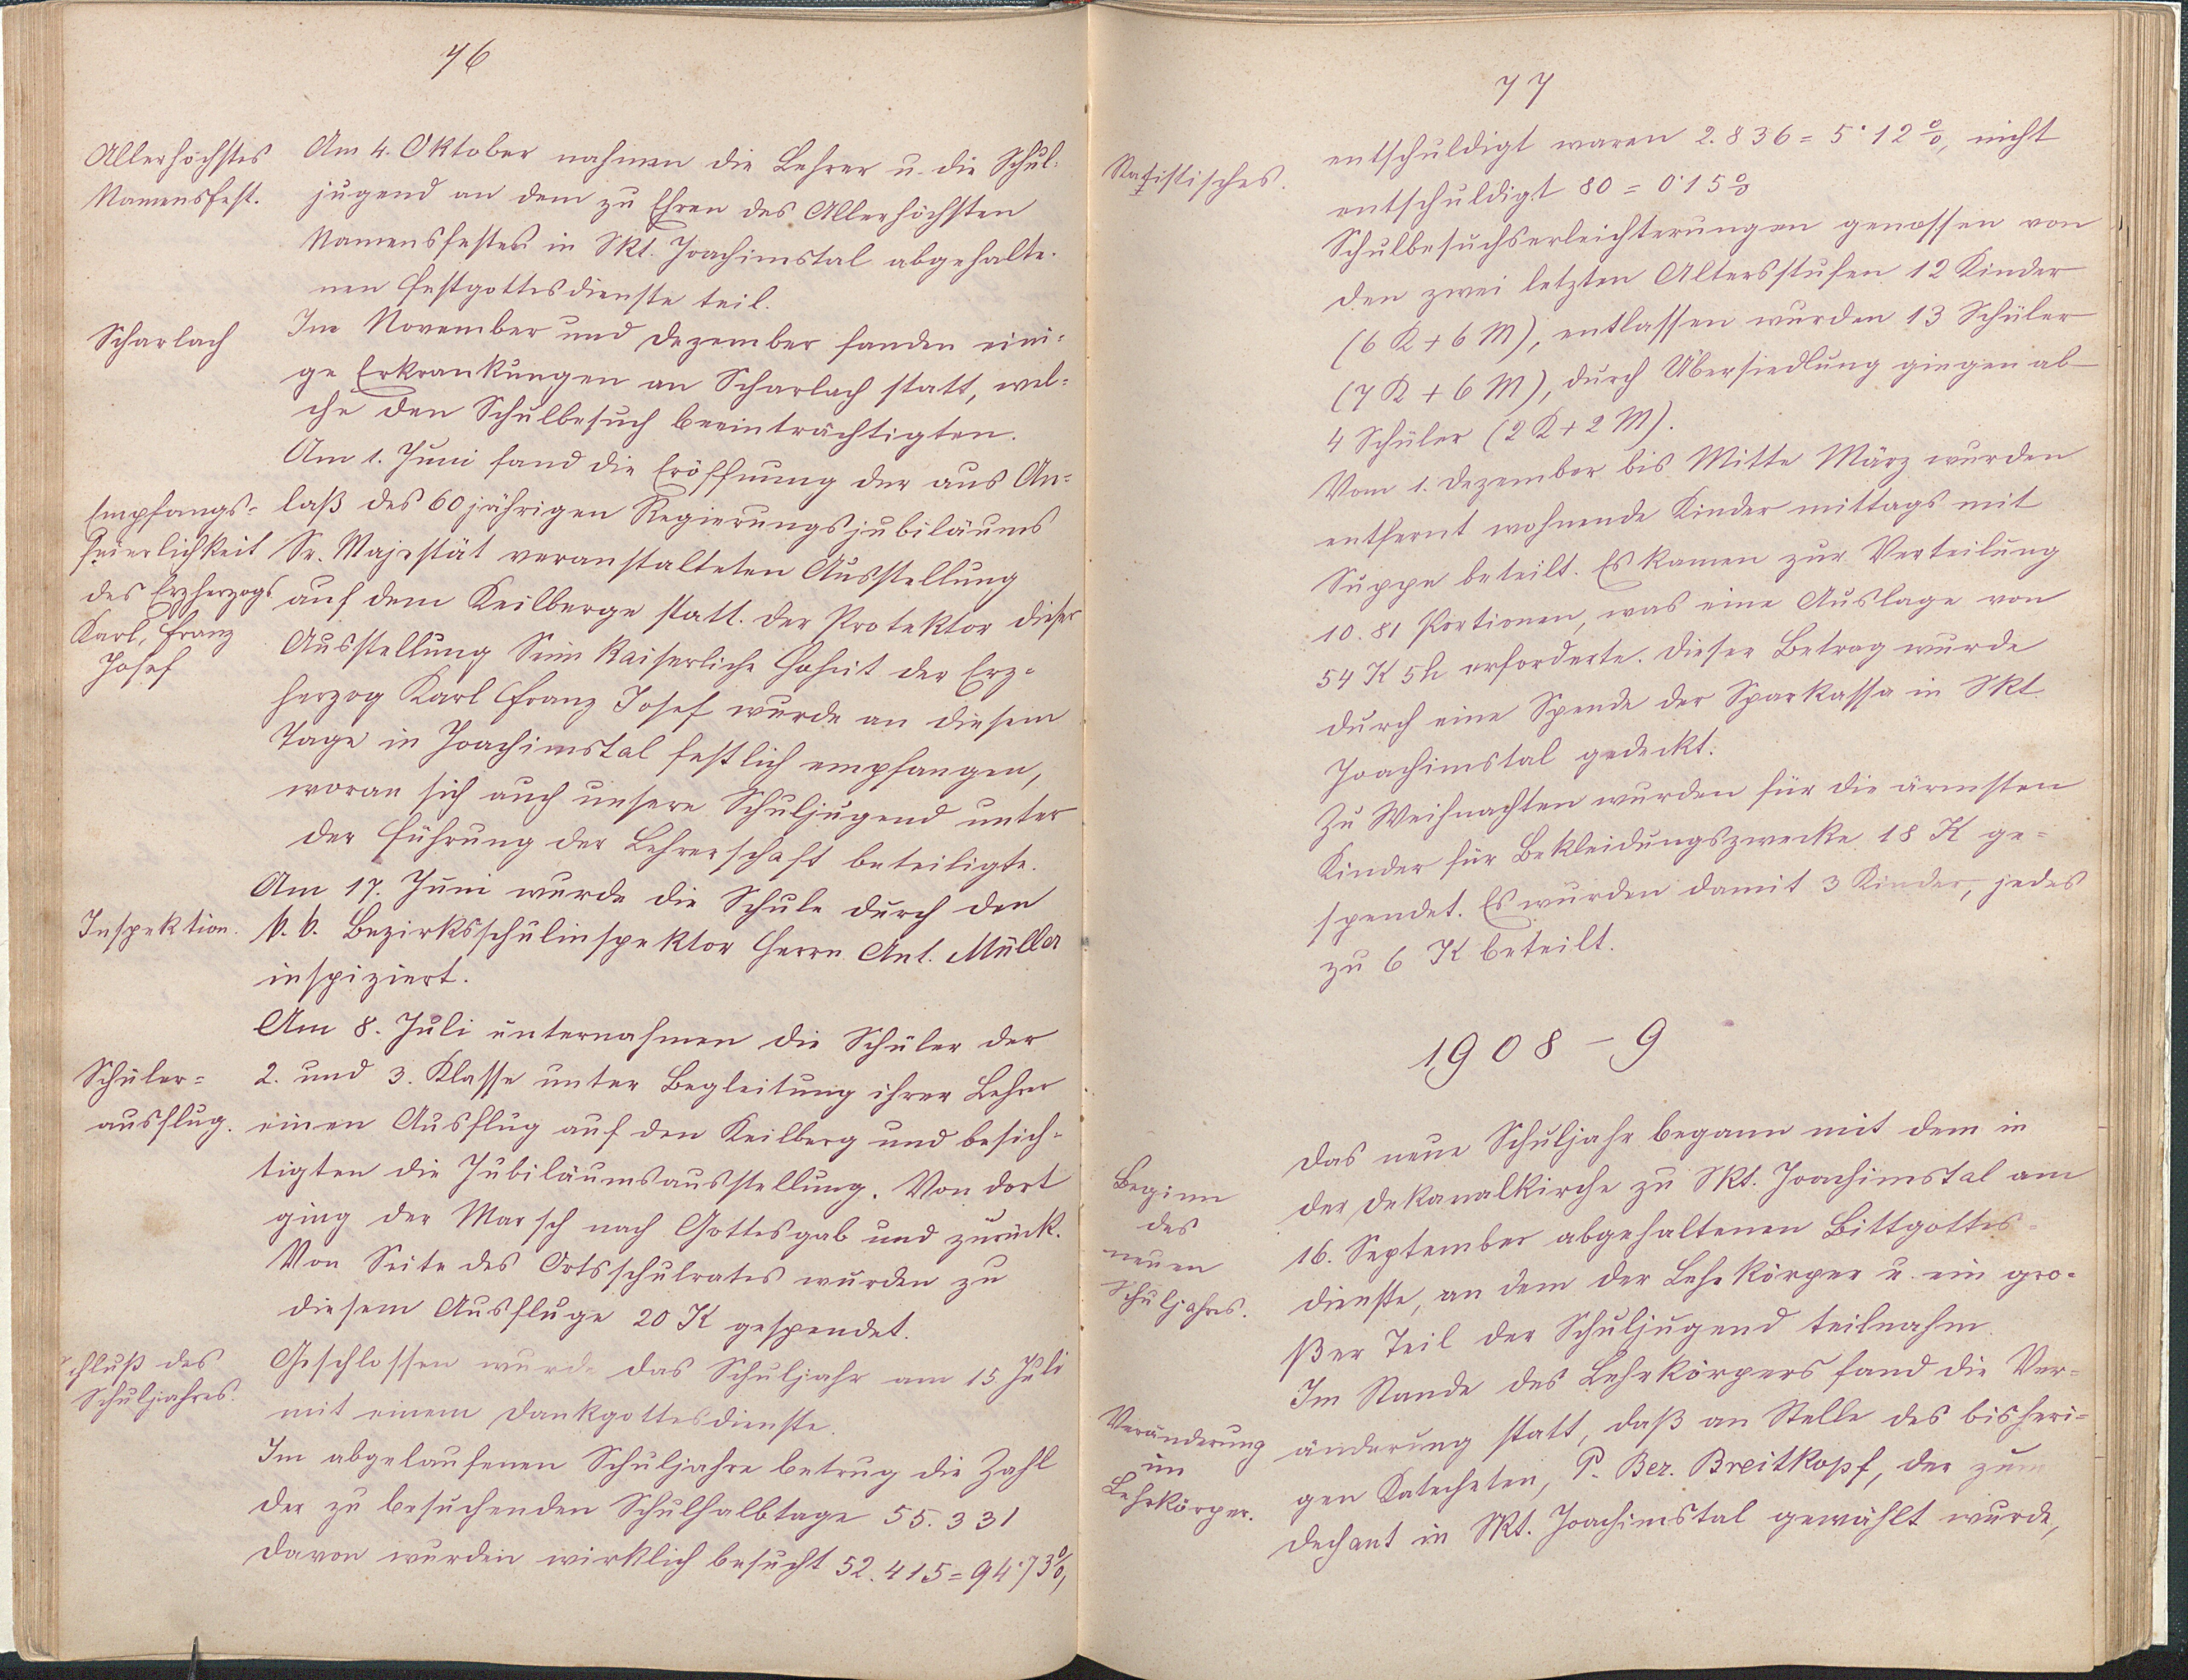 76
Allerhöchstes
Namensfest.
Am 4. Oktober nahmen die Lehrer u. die Schul-
jugend an dem zu Ehren des Allerhöchsten
Namensfestes in Skt. Joachimstal abgehalte-
nen Festgottesdienste teil.
Scharlach
Im November und Dezember fanden eini-
ge Erkrankungen an Scharlach statt, wel-
che den Schulbesuch beeinträchtigten.
Am 1. Juni fand die Eröffnung der aus An-
Empfangs-
feierlichkeit
des Erzherzogs
Karl, Franz
Josef
laß des 60 jährigen Regierungsjubiläums
Sr. Majestät veranstalteten Ausstellung
auf dem Keilberge statt. Der Protektor dieser
Ausstellung Seine Kaiserliche Hoheit der Erz-
herzog Karl Franz Josef wurde an diesem
Tage in Joachimstal festlich empfangen,
woran sich auch unsere Schuljugend unter
der Führung der Lehrerschaft beteiligte.
Inspektion.
Am 17. Juni wurde die Schule durch den
k. k. Bezirksschulinspektor Herrn Ant. Müller
inspiziert.
Schüler-
ausflug.
Am 8. Juli unternahmen die Schüler der
2. und 3. Klasse unter Begleitung ihrer Lehrer
einen Ausflug auf den Keilberg und besich-
tigten die Jubiläumsausstellung. Von dort
ging der Marsch nach Gottesgab und zurück.
Von Seite des Ortsschulrates wurden zu
diesem Ausfluge 20 K gespendet.
Schluß des
Schuljahres.
Geschlossen wurde das Schuljahr am 15. Juli
mit einem Dankgottesdienste.
Im abgelaufenen Schuljahre betrug die Zahl
der zu besuchenden Schulhalbtage 55.331
davon wurden wirklich besucht 52.415 = 94·73%,
77
Statistisches.
entschuldigt waren 2.836 = 5·12%, nicht
entschuldigt 80 = 0·15%
Schulbesuchserleichterungen genossen von
den zwei letzten Altersstufen 12 Kinder
(6 K + 6 M), entlassen wurden 13 Schüler
(7 K + 6 M), durch Übersiedlung gingen ab
4 Schüler (2 K + 2 M).
Vom 1. Dezember bis Mitte März wurden
entfernt wohnende Kinder mittags mit
Suppe beteilt. Es kamen zur Verteilung
10.81 Portionen, was eine Auslage von
54 K 5 h erforderte. Dieser Betrag wurde
durch eine Spende der Sparkassa in Skt.
Joachimstal gedeckt.
Zu Weihnachten wurden für die ärmsten
Kinder für Bekleidungszwecke 18 K ge-
spendet. Es wurden damit 3 Kinder, jedes
zu 6 K beteilt.
1908 – 9
Beginn
des
neuen
Schuljahres.
Das neue Schuljahr begann mit dem in
der Dekanalkirche zu Skt. Joachimstal am
16. September abgehaltenen Bittgottes-
dienste, an dem der Lehrkörper u. ein gro-
ßer Teil der Schuljugend teilnahm.
Veränderung
im
Lehrkörper.
Im Stande des Lehrkörpers fand die Ver-
änderung statt, daß an Stelle des bisheri-
gen Katecheten, P. Ber. Breitkopf, der zum
Dechant in Skt. Joachimstal gewählt wurde,